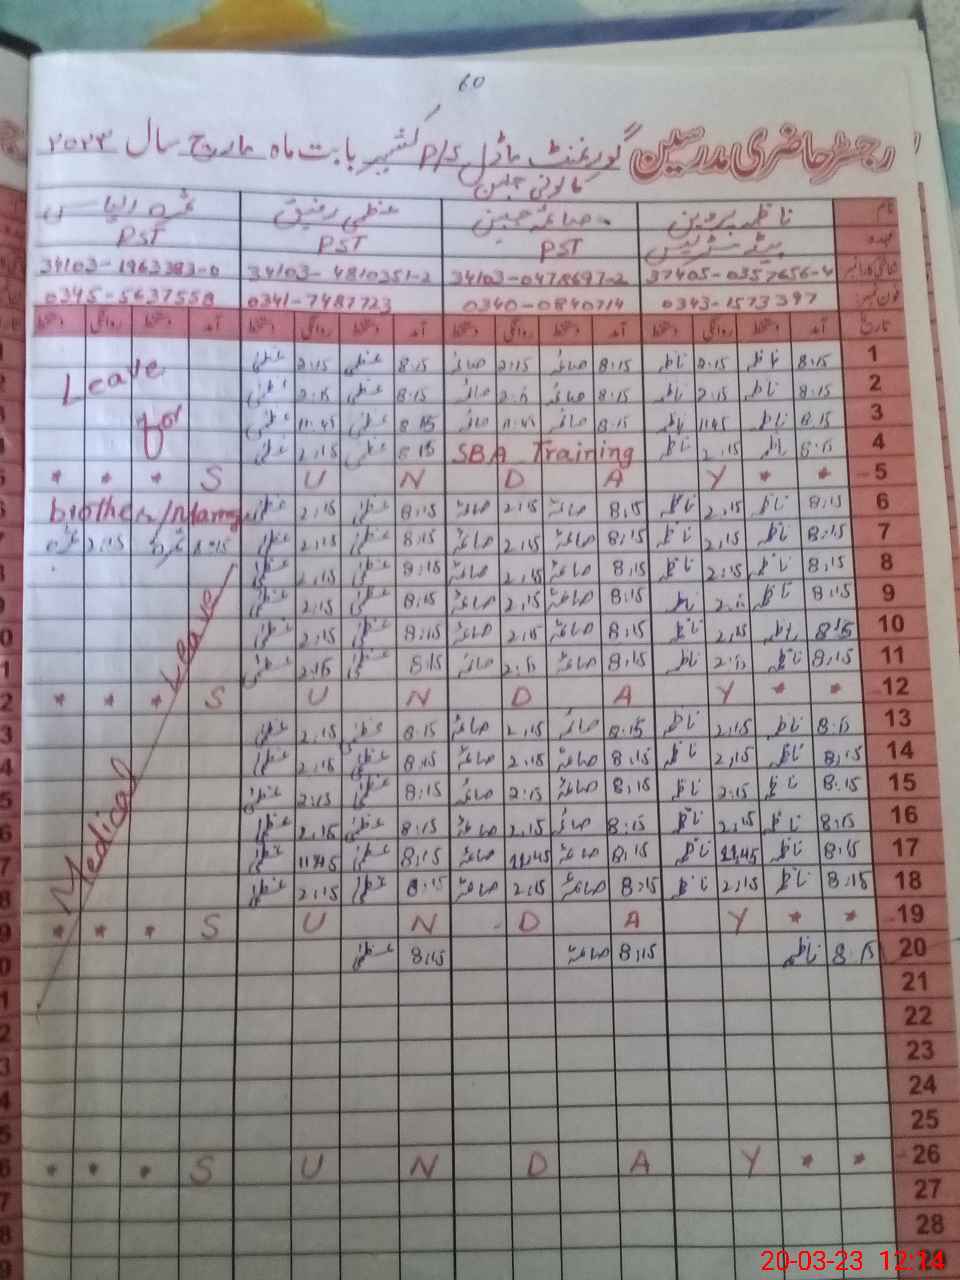 60
رجسٹر حاضری مدرسین گورنمنٹ ماڈل P/S کشمیر بابت ماہ مارچ سال ۲۰۲۳
کالونی جہلم
نام ناظمہ پروین صائمہ جبین عظمیٰ رفیق
عہدہ ہیڈ مسٹریس PST PST PST
37405-0357656-4 34103-0478697-2 34103-4810351-2 34103-1963383-0
فون نمبر 0343-1573397 0340-0840714 0341-7487723 0345-5637558
تاریخ آمد دستخط روانگی دستخط آمد دستخط روانگی دستخط آمد دستخط روانگی دستخط آمد دستخط روانگی دستخط
1 8.15 ناظمہ 2.15 ناظمہ 8.15 صائمہ 2.15 صائمہ 8.15 عظمیٰ 2.15 عظمیٰ Leave
2 8.15 ناظمہ 2.15 ناظمہ 8.15 صائمہ 2.15 صائمہ 8.15 عظمیٰ 2.15 عظمیٰ
3 8.15 ناظمہ 11.45 ناظمہ 8.15 صائمہ 11.45 صائمہ 8.15 عظمیٰ 11.45 عظمیٰ for
4 8.15 ناظمہ 2.15 ناظمہ SBA Training 8.15 عظمیٰ 2.15 عظمیٰ
* * * S U N D A Y * * 5
6 8.15 ناظمہ 2.15 ناظمہ 8.15 صائمہ 2.15 صائمہ 8.15 عظمیٰ 2.15 عظمیٰ brother/
7 8.15 ناظمہ 2.15 ناظمہ 8.15 صائمہ 2.15 صائمہ 8.15 عظمیٰ 2.15 عظمیٰ 8.15 2.15
8 8.15 ناظمہ 2.15 ناظمہ 8.15 صائمہ 2.15 صائمہ 8.15 عظمیٰ 2.15 عظمیٰ
9 8.15 ناظمہ 2.15 ناظمہ 8.15 صائمہ 2.15 صائمہ 8.15 عظمیٰ 2.15 عظمیٰ
10 8.15 ناظمہ 2.15 ناظمہ 8.15 صائمہ 2.15 صائمہ 8.15 عظمیٰ 2.15 عظمیٰ
11 8.15 ناظمہ 2.15 ناظمہ 8.15 صائمہ 2.15 صائمہ 8.15 عظمیٰ 2.15 عظمیٰ
* * * S U N D A Y * * 12
13 8.15 ناظمہ 2.15 ناظمہ 8.15 صائمہ 2.15 صائمہ 8.15 عظمیٰ 2.15 عظمیٰ
14 8.15 ناظمہ 2.15 ناظمہ 8.15 صائمہ 2.15 صائمہ 8.15 عظمیٰ 2.15 عظمیٰ
15 8.15 ناظمہ 2.15 ناظمہ 8.15 صائمہ 2.15 صائمہ 8.15 عظمیٰ 2.15 عظمیٰ
16 8.15 ناظمہ 2.15 ناظمہ 8.15 صائمہ 2.15 صائمہ 8.15 عظمیٰ 2.15 عظمیٰ
17 8.15 ناظمہ 11.45 ناظمہ 8.15 صائمہ 11.45 صائمہ 8.15 عظمیٰ 11.45 عظمیٰ
18 8.15 ناظمہ 2.15 ناظمہ 8.15 صائمہ 2.15 صائمہ 8.15 عظمیٰ 2.15 عظمیٰ
Medical Leave
* * * S U N D A Y * * 19
20 8.15 ناظمہ 8.15 صائمہ 8.15 عظمیٰ
21
22
23
24
25
* * * S U N D A Y * * 26
27
28
20-03-23 12:14